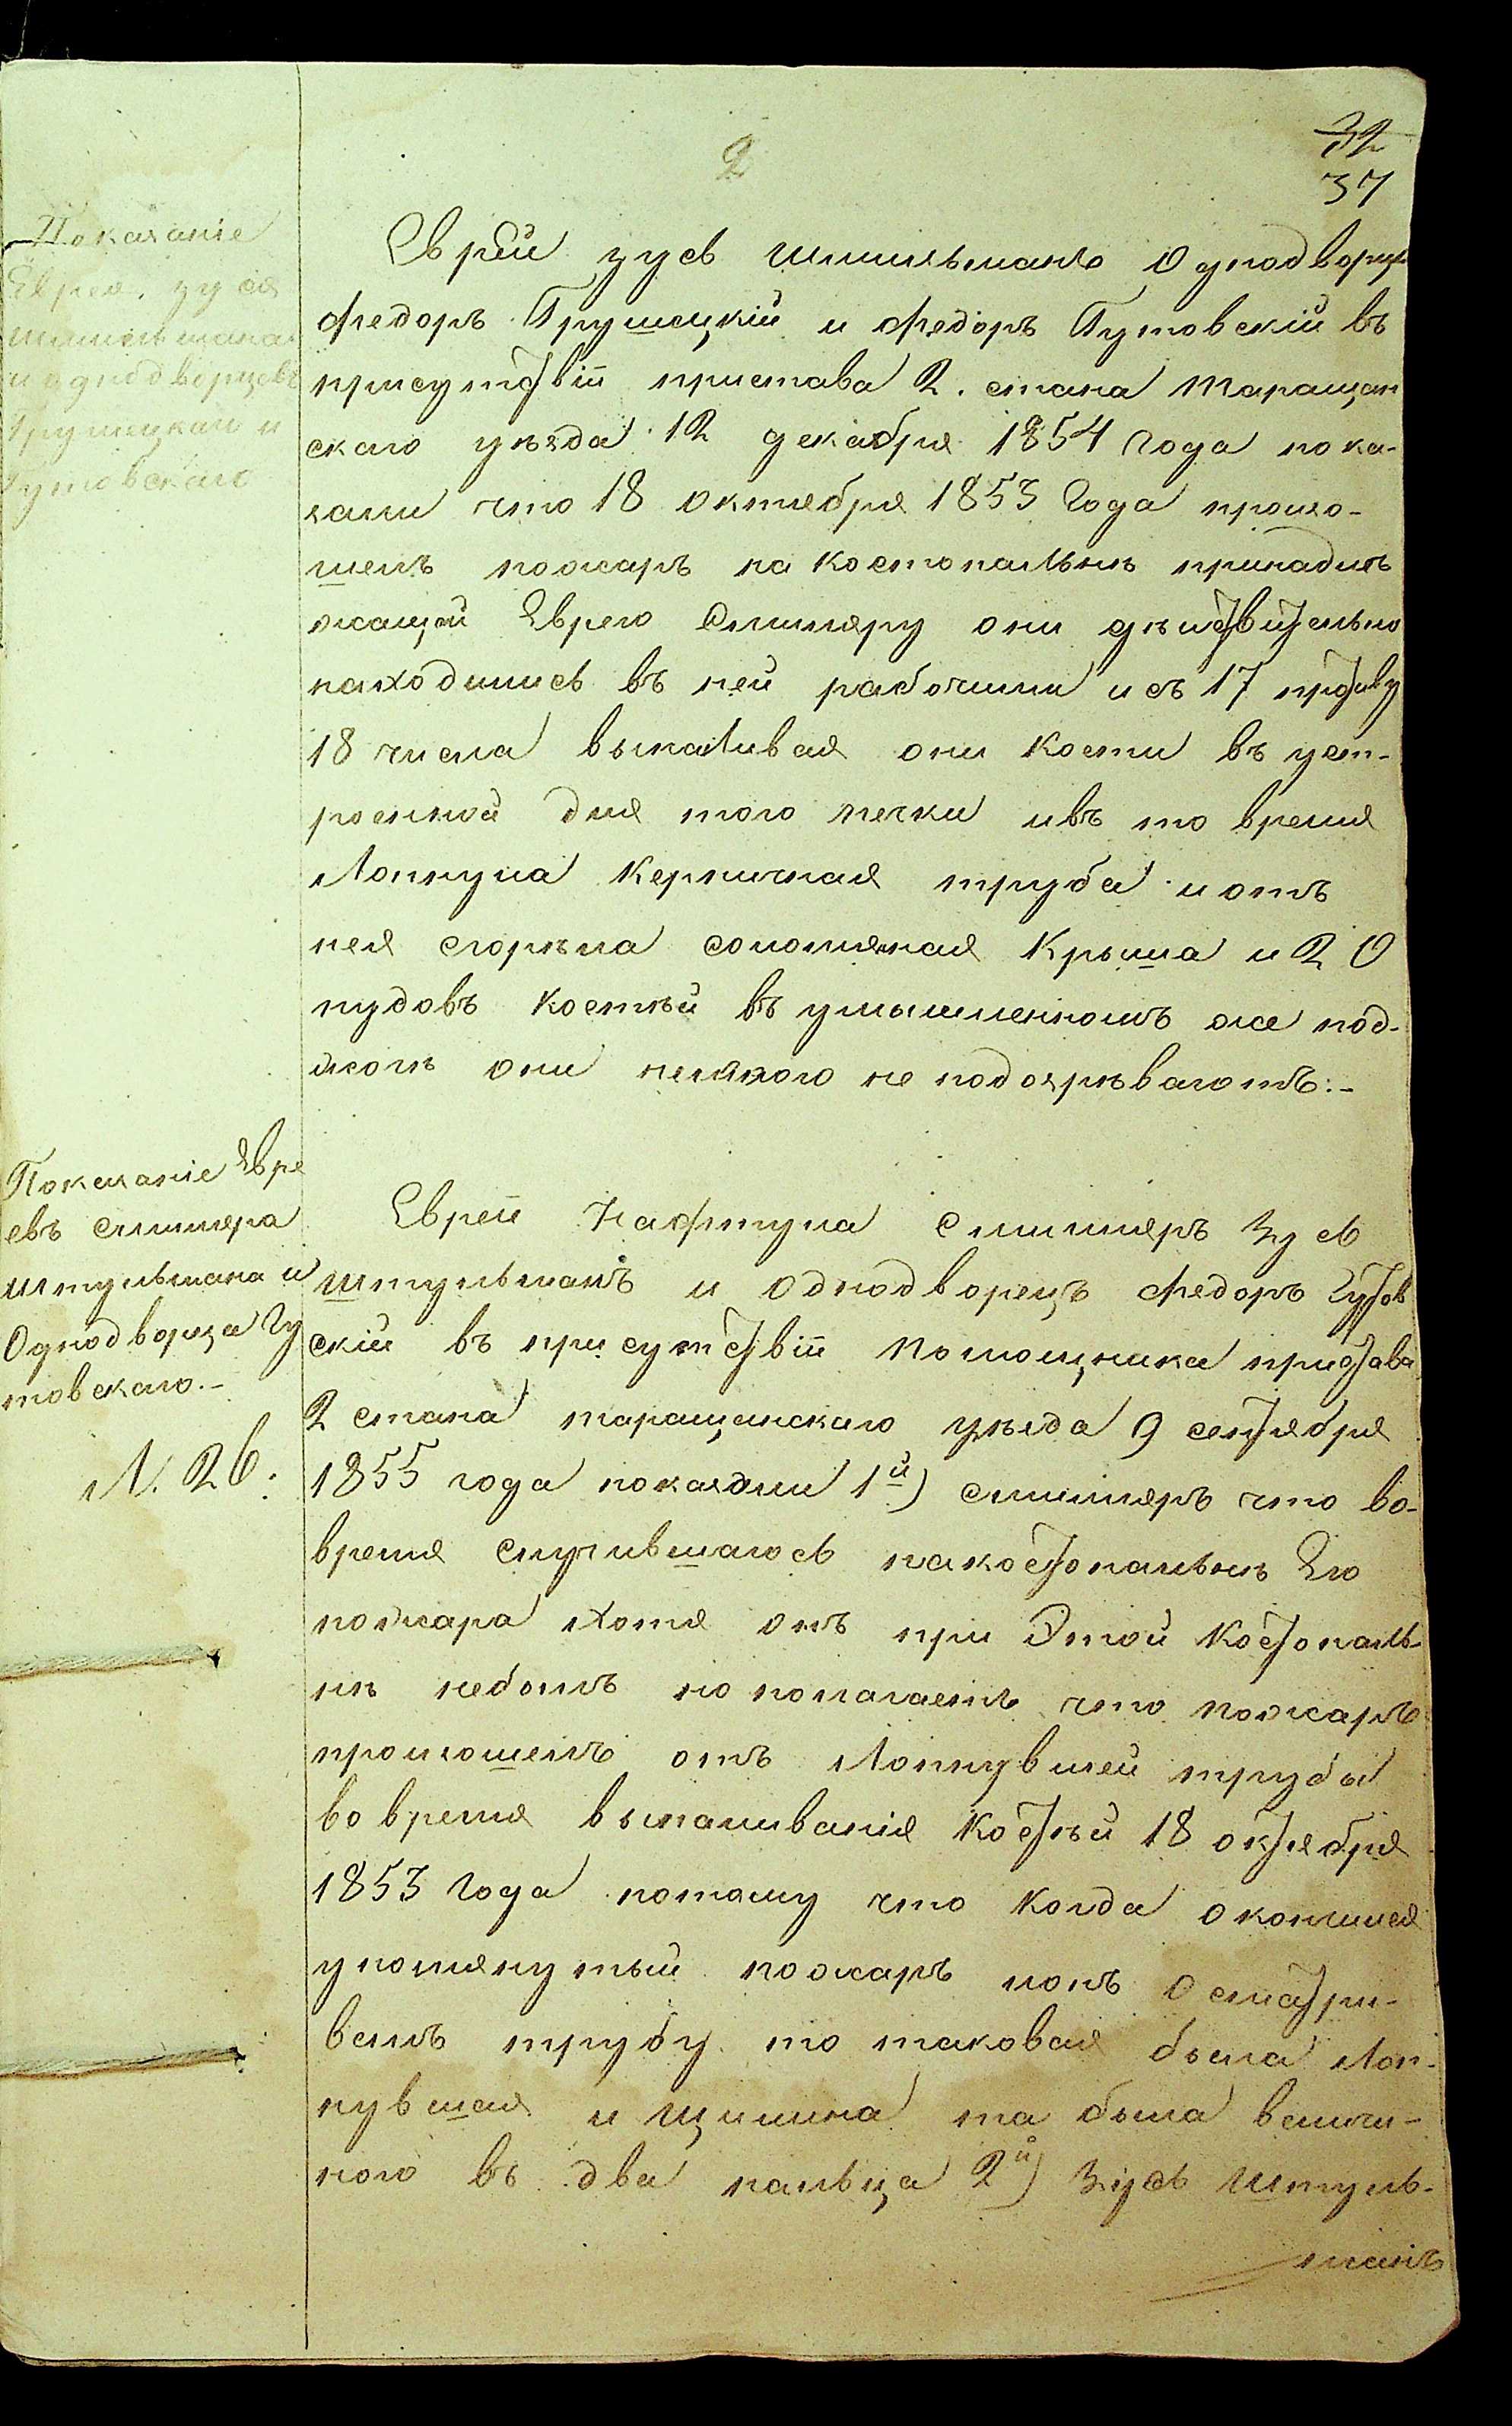 2
32
37
Показаніе
Еврея. зуся
шпильмана
и однодворцевъ
Грушецкаго и
Гутовскаго
Еврей зусь шпильманъ Однодворцы
Федоръ Грушецкій и Федоръ Гутовскій въ
присутствіи пристава 2. стана Таращан
скаго уѣзда 12 декабря 1854 года пока-
зали что 18 Октября 1853 Года произо-
шелъ пожаръ на Костопальнѣ принадле
жащей Еврею Слиммеру они дѣйствительно
находились въ ней рабочими исъ 17 противу
18 числа выпаливая они Кости въ уст-
роенной для того печки ивъ то время
Лопнула Керпичная труба иотъ
нея сгорѣла соломяная Крыша и 20
пудовъ Костѣй въ умышленномъ же под-
жогѣ они никого не подозрѣваютъ:-
Показаніе Евре
евъ слиммера
штульмана и
Однодворца Гу
товскаго.-
N. 26.
Еврей Нафтула слиммеръ Зусь
штульманъ и Однодворецъ Федоръ Гутов
скій въ присутствіи Помощника пристава
2 стана таращанскаго уѣзда 9 сентября
1855 года показали 1й) слиммеръ что во-
время случившагось накостопальнѣ Его
пожара Хотя онъ при Этой Костопаль-
нѣ небылъ но полагаетъ что Пожаръ
произошелъ отъ Лопнувшей трубы
во время выпаливанія Костѣй 18 октября
1853 Года потому что Когда окончился
упомянутый пожаръ ионъ Осматри-
велъ трубу то таковая была Лоп-
нувшая и щилина та была величи-
ною въ два пальца 2й) Зусь Штуль-
манъ